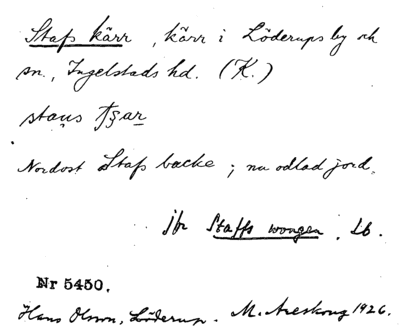 Stafs kärr, kärr i Löderups by och
sn., Ingelstads hd. (K.)
Nordost Stafs backe; nu odlad jord.
jfr Staffs wongen. Lb.
Nr 5450.
Hans Olsson, Löderup. M. Areskoug 1926.